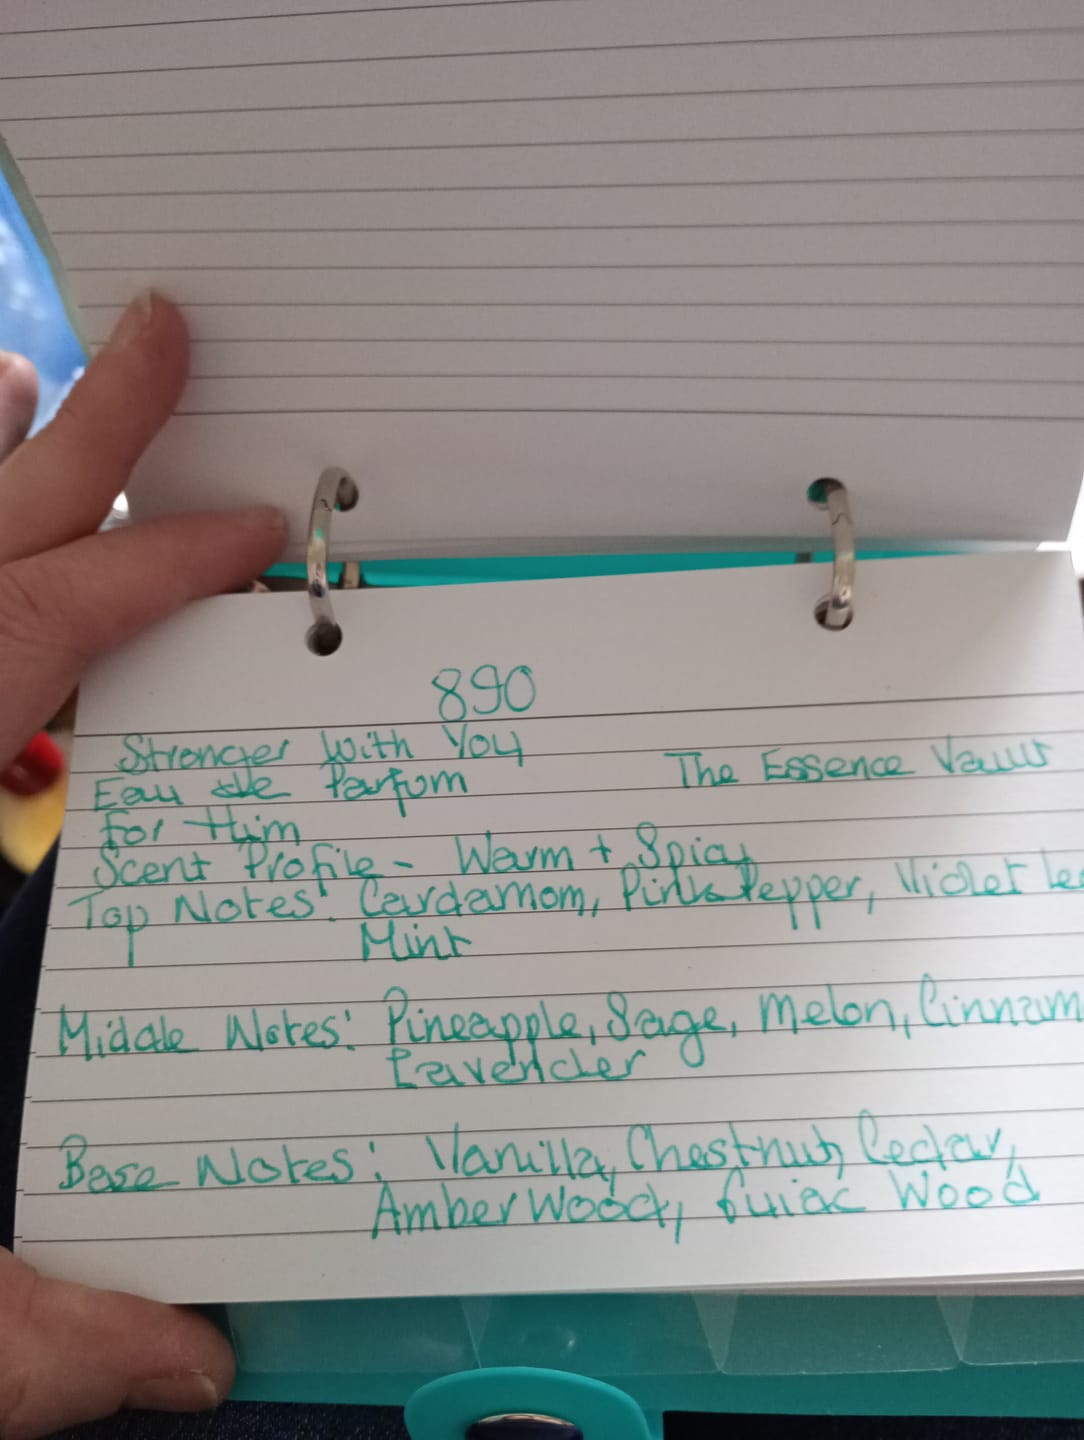 890
Stronger With You
Eau de Parfum The Essence Vault
For Him
Scent Profile - Warm + Spicy
Top Notes: Cardamom, Pink Pepper, Violet Le
Mint
Middle Notes: Pineapple, Sage, Melon, Cinnam
Lavender
Base Notes: Vanilla, Chestnut, Cedar,
Amber Wood, Guiac Wood